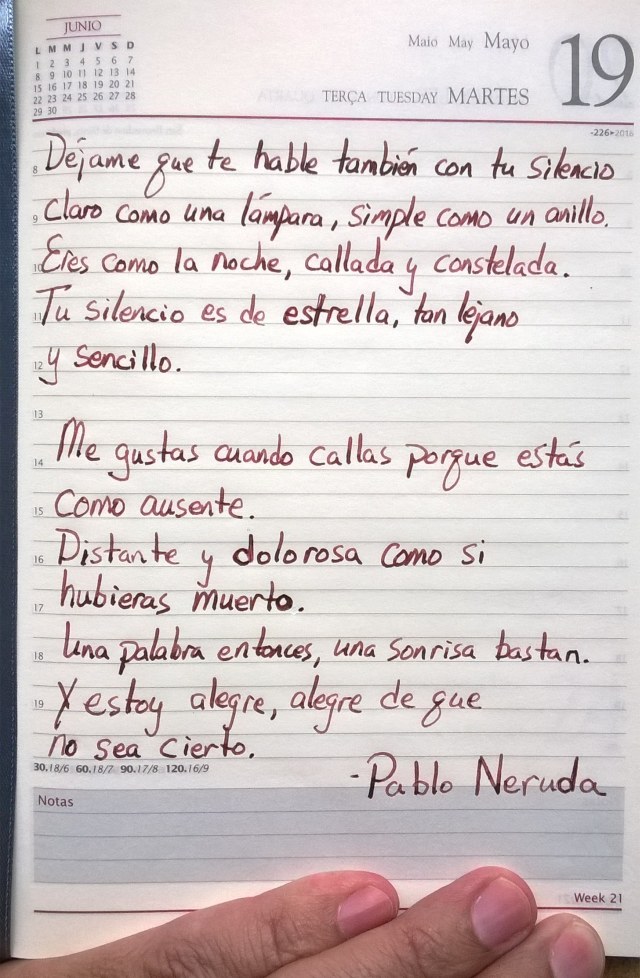 JUNIO
L M M J V S D
1 2 3 4 5 6 7
8 9 10 11 12 13 14
15 16 17 18 19 20 21
22 23 24 25 26 27 28
29 30
Maio May Mayo
19
TERÇA TUESDAY MARTES
-226▸2016
8 Déjame que te hable también con tu silencio
9 Claro como una lámpara, simple como un anillo.
10 Eres como la noche, callada y constelada.
11 Tu silencio es de estrella, tan lejano
12 y sencillo.
13
14 Me gustas cuando callas porque estás
15 como ausente.
16 Distante y dolorosa como si
17 hubieras muerto.
18 Una palabra entonces, una sonrisa bastan.
19 Y estoy alegre, alegre de que
no sea cierto.
30.18/6 60.18/7 90.17/8 120.16/9
-Pablo Neruda
Notas
Week 21